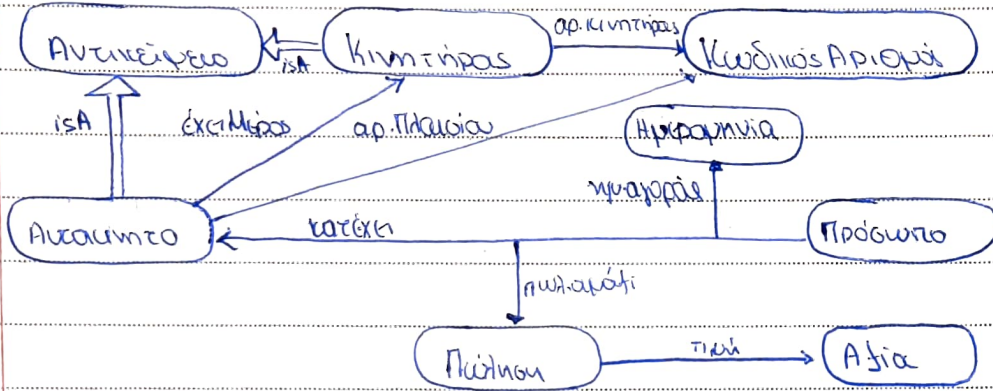 Αντικείμενο
isA
Κινητήρας
αρ.κινητήρας
Κωδικός Αριθμό
isA
έχειΜέρος
αρ.Πλαισίου
Ημερομηνία
ημ.αγοράς
Αυτοκίνητο
κατέχει
Πρόσωπο
πωλ.αμάξι
Πώληση
τιμή
Αξία